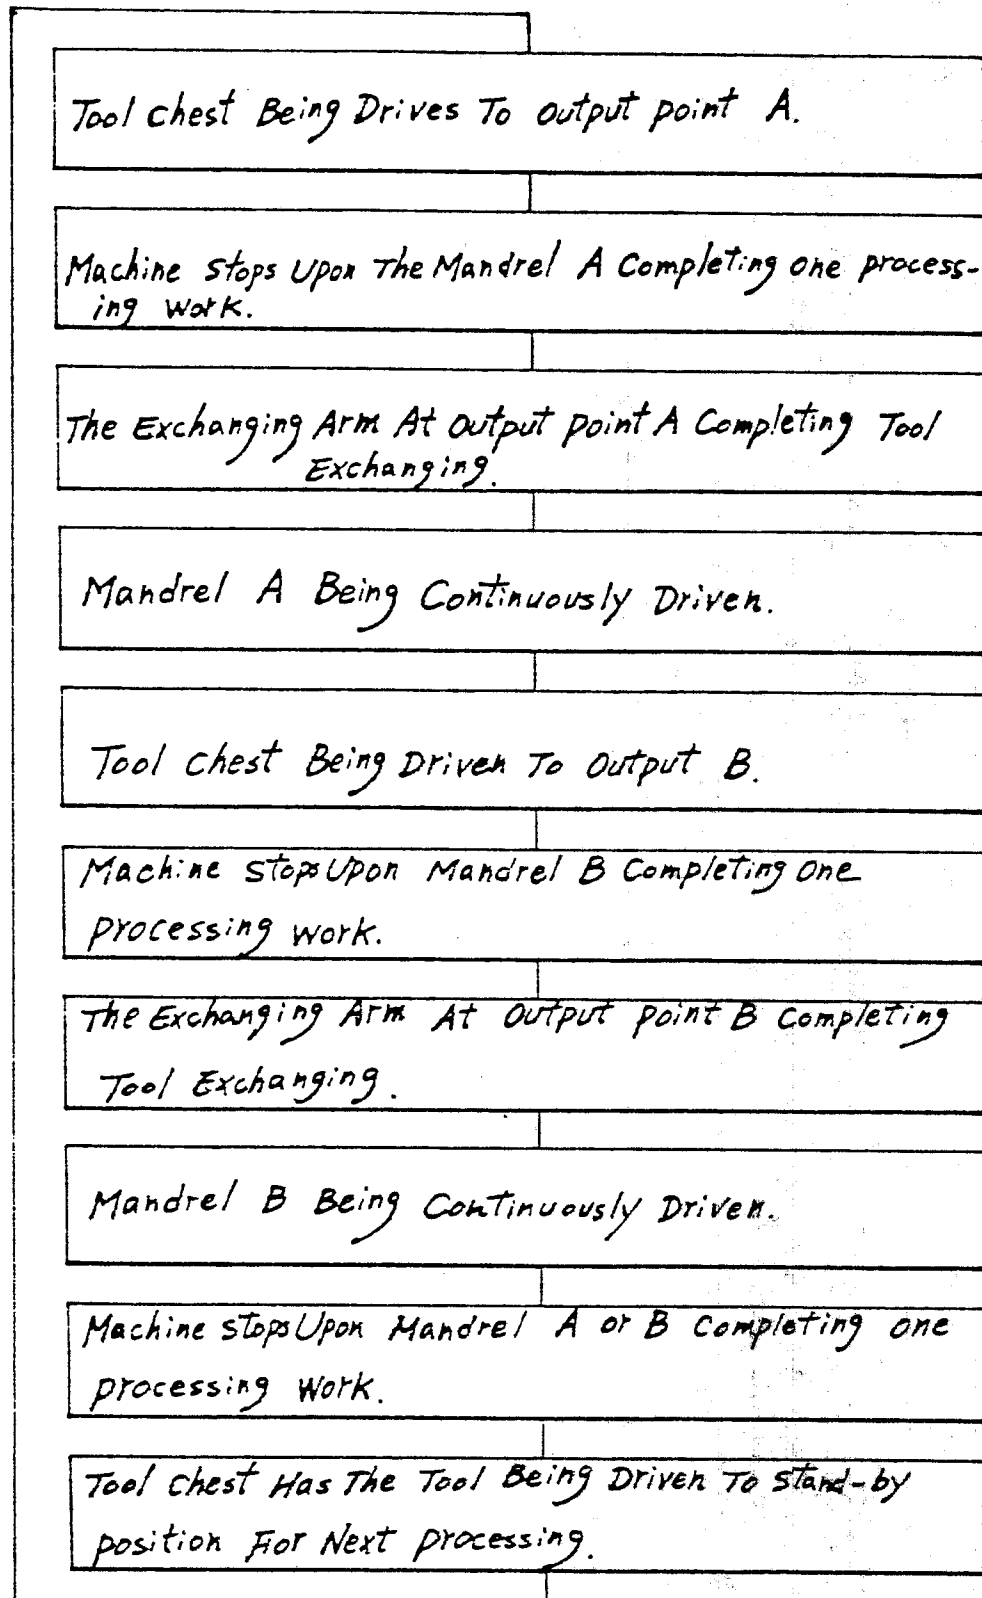 Tool Chest Being Drives To Output Point A.
Machine Stops Upon The Mandrel A Completing One Process-
ing Work.
The Exchanging Arm At Output Point A Completing Tool
Exchanging.
Mandrel A Being Continuously Driven.
Tool Chest Being Driven To Output B.
Machine Stops Upon Mandrel B Completing One
Processing Work.
The Exchanging Arm At Output Point B Completing
Tool Exchanging.
Mandrel B Being Continuously Driven.
Machine Stops Upon Mandrel A or B Completing One
Processing Work.
Tool Chest Has The Tool Being Driven To Stand-by
Position For Next Processing.